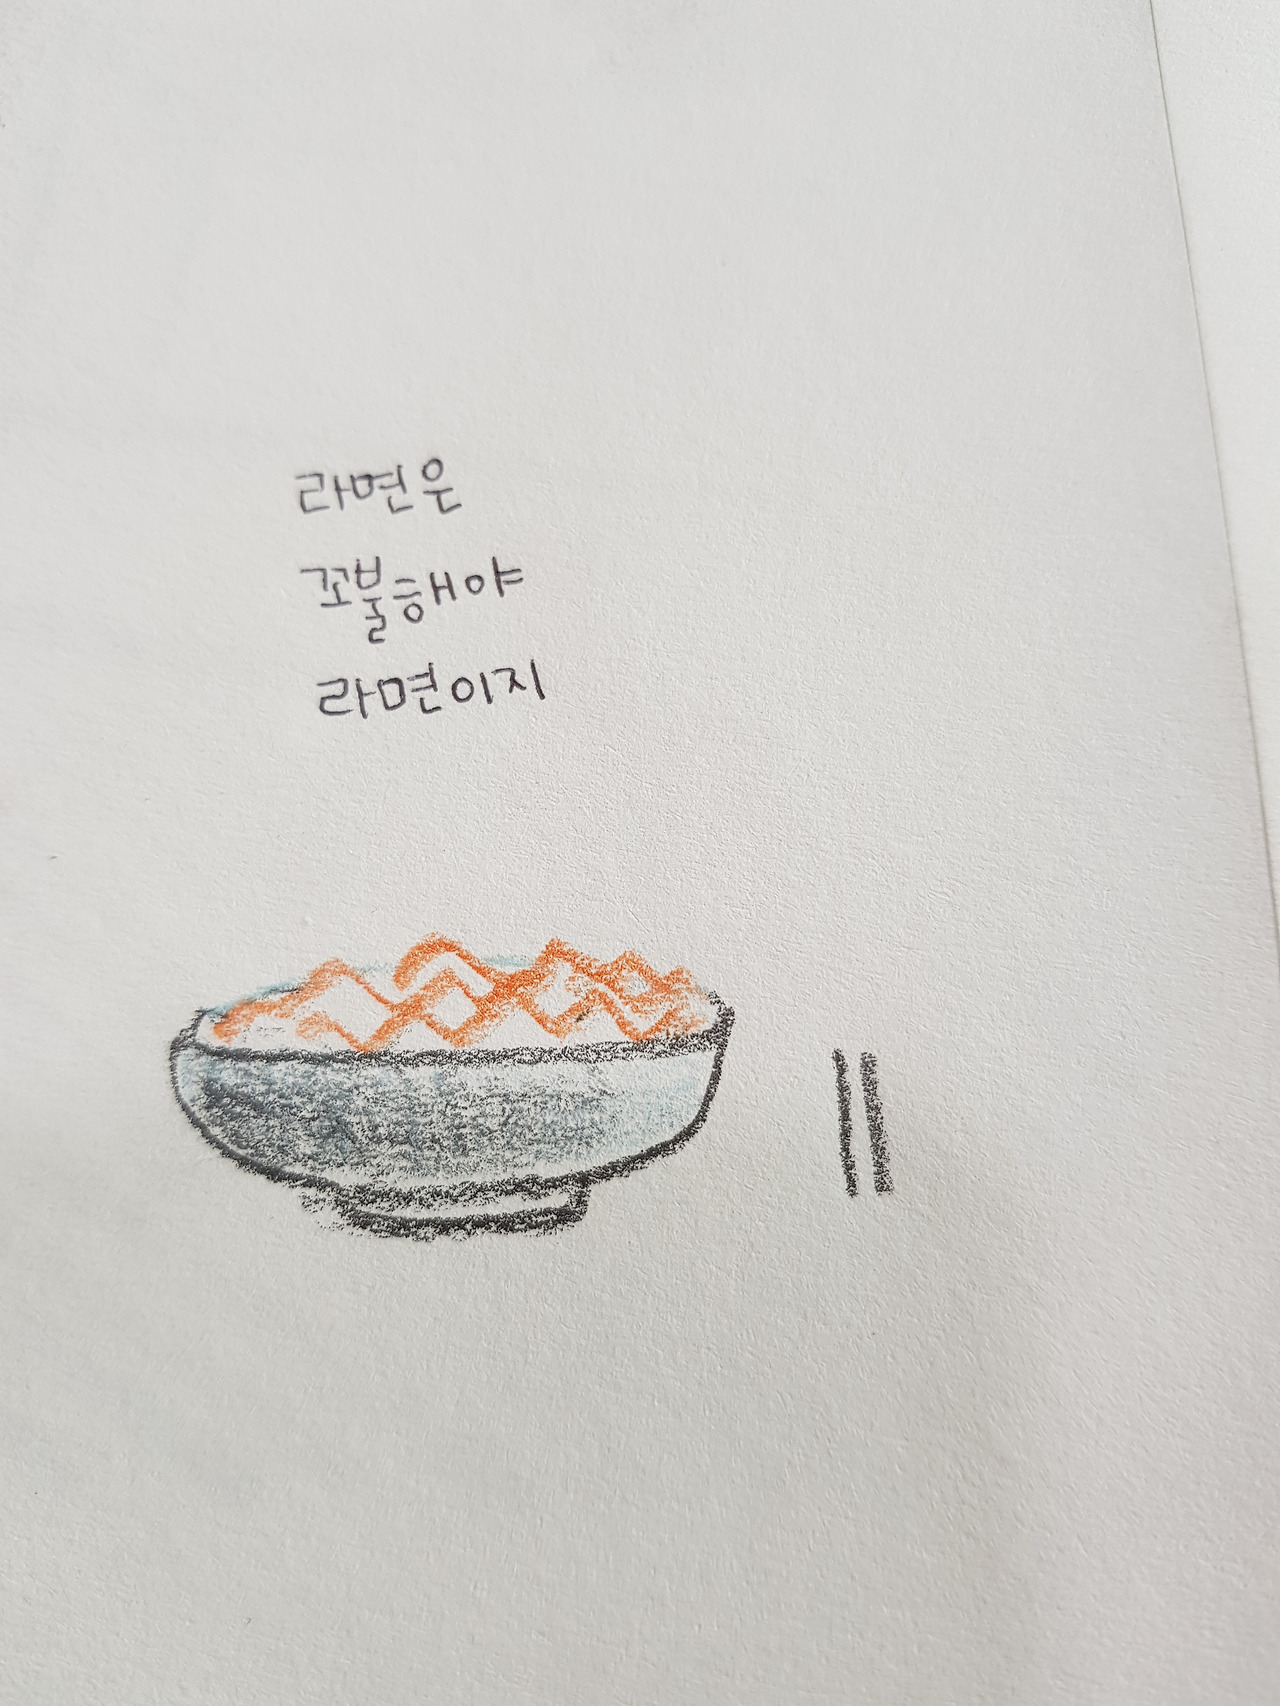 라면은
꼬불해야
라면이지